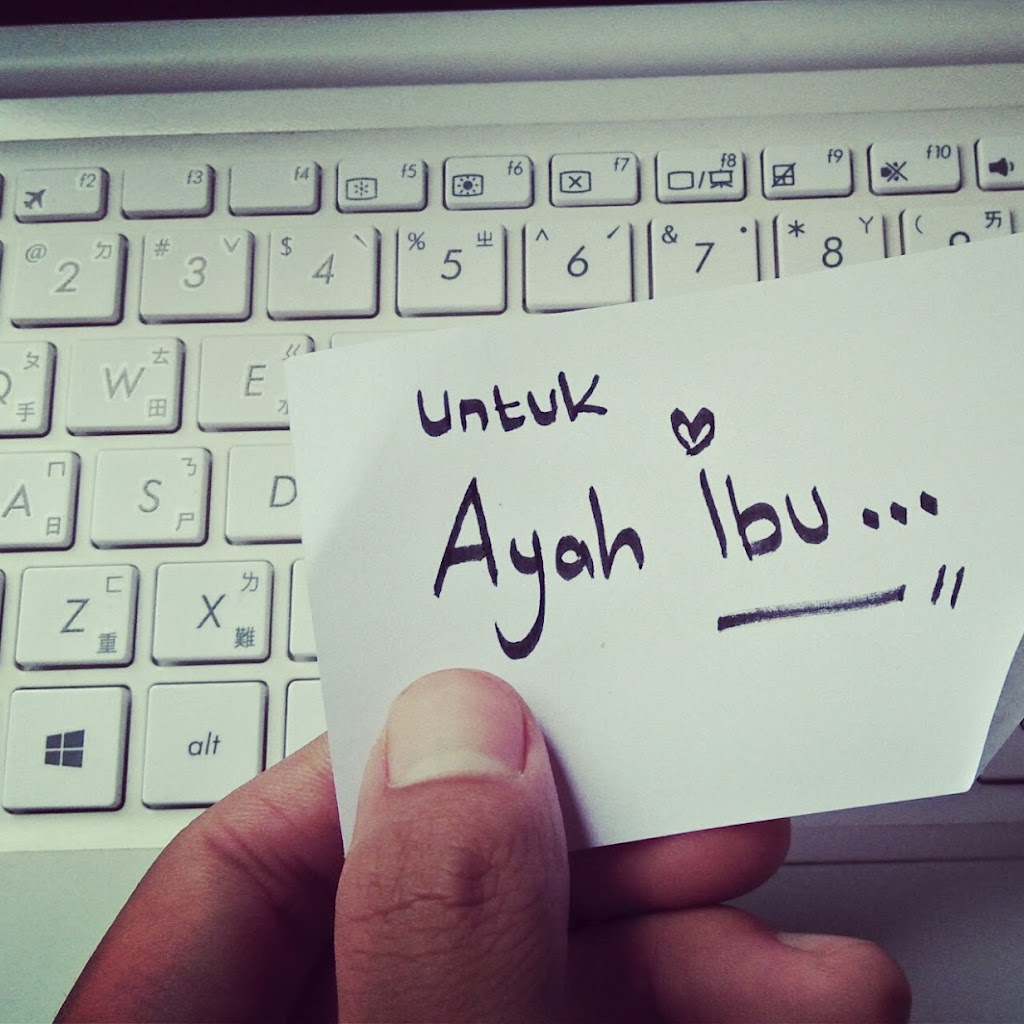 f2 f3 f4 f5 f6 f7 f8 f9 f10
@ 2 ㄉ # 3 ˇ $ 4 ˋ % 5 ㄓ ^ 6 ˊ & 7 ˙ * 8 ㄚ ( 9 ㄞ
Q ㄆ 手 W ㄊ 田 E ㄍ 水
A ㄇ 日 S ㄋ 尸 D
Z ㄈ 重 X ㄌ 難
alt
untuk
Ayah Ibu...